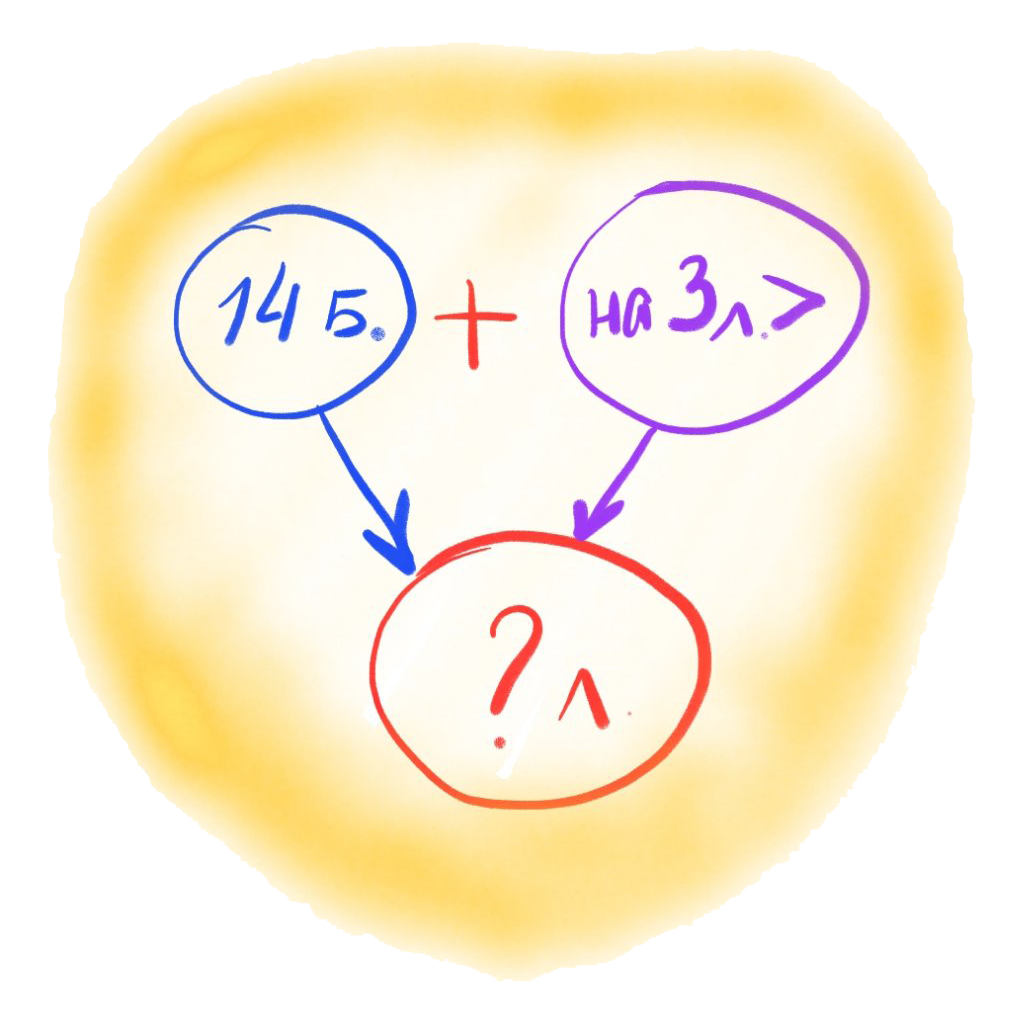 14 Б. + на 3 л. >
? л.